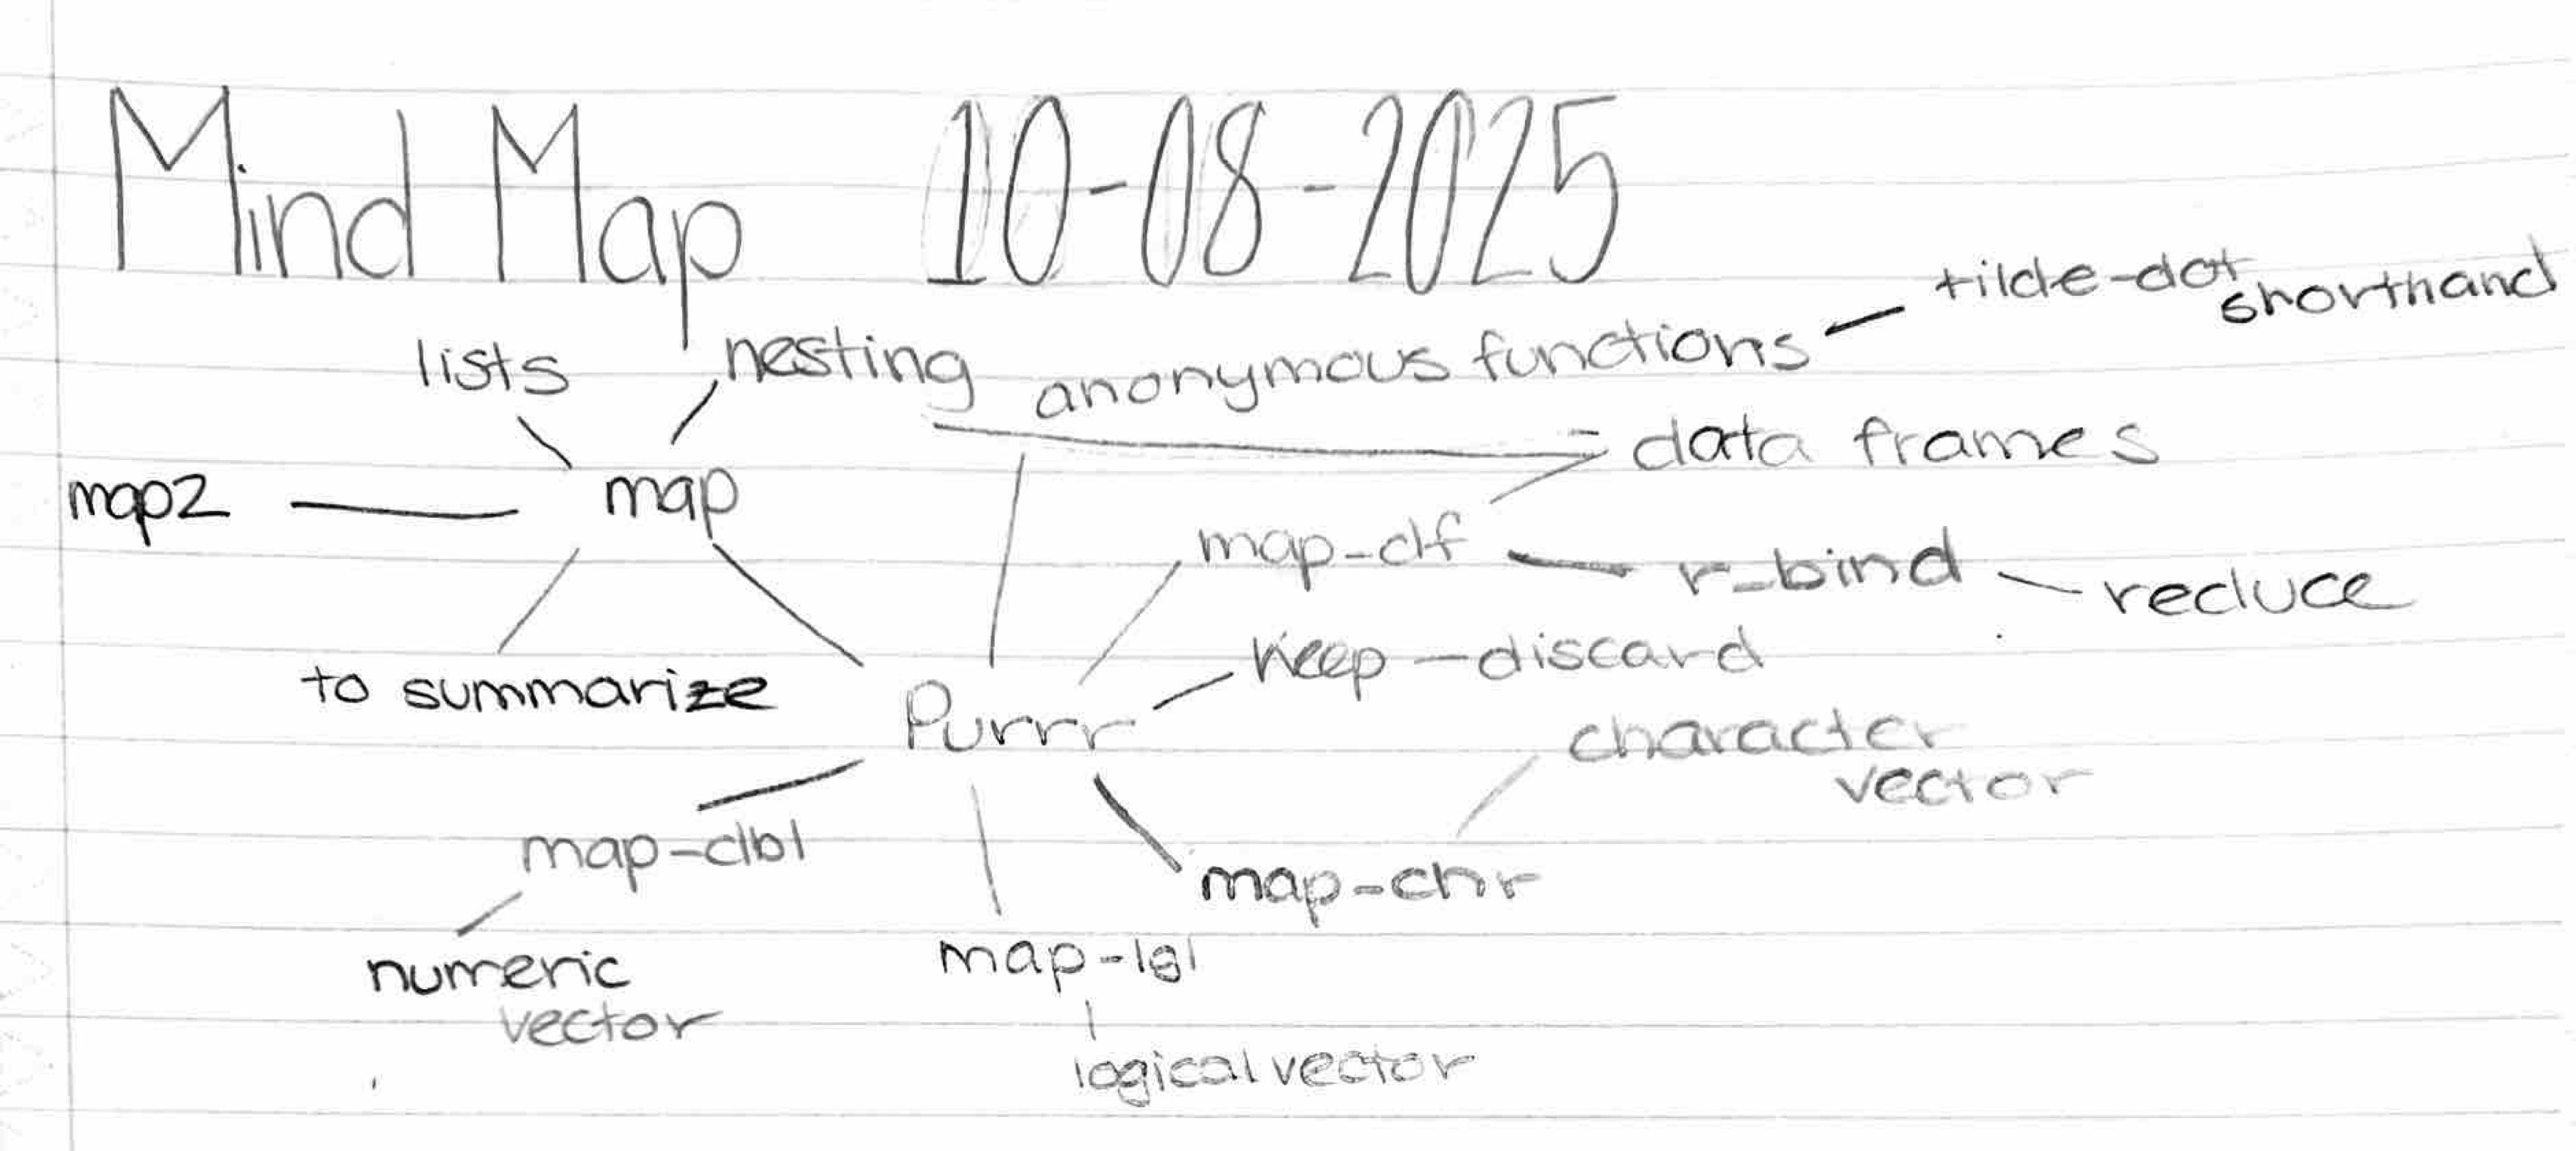 Mind Map 10-08-2025
tilde-dot
shorthand
lists
nesting
anonymous functions
data frames
map2
map
map-df
r-bind
reduce
keep-discard
to summarize
Purrr
character
vector
map-dbl
map-chr
numeric
vector
map-lgl
logical vector